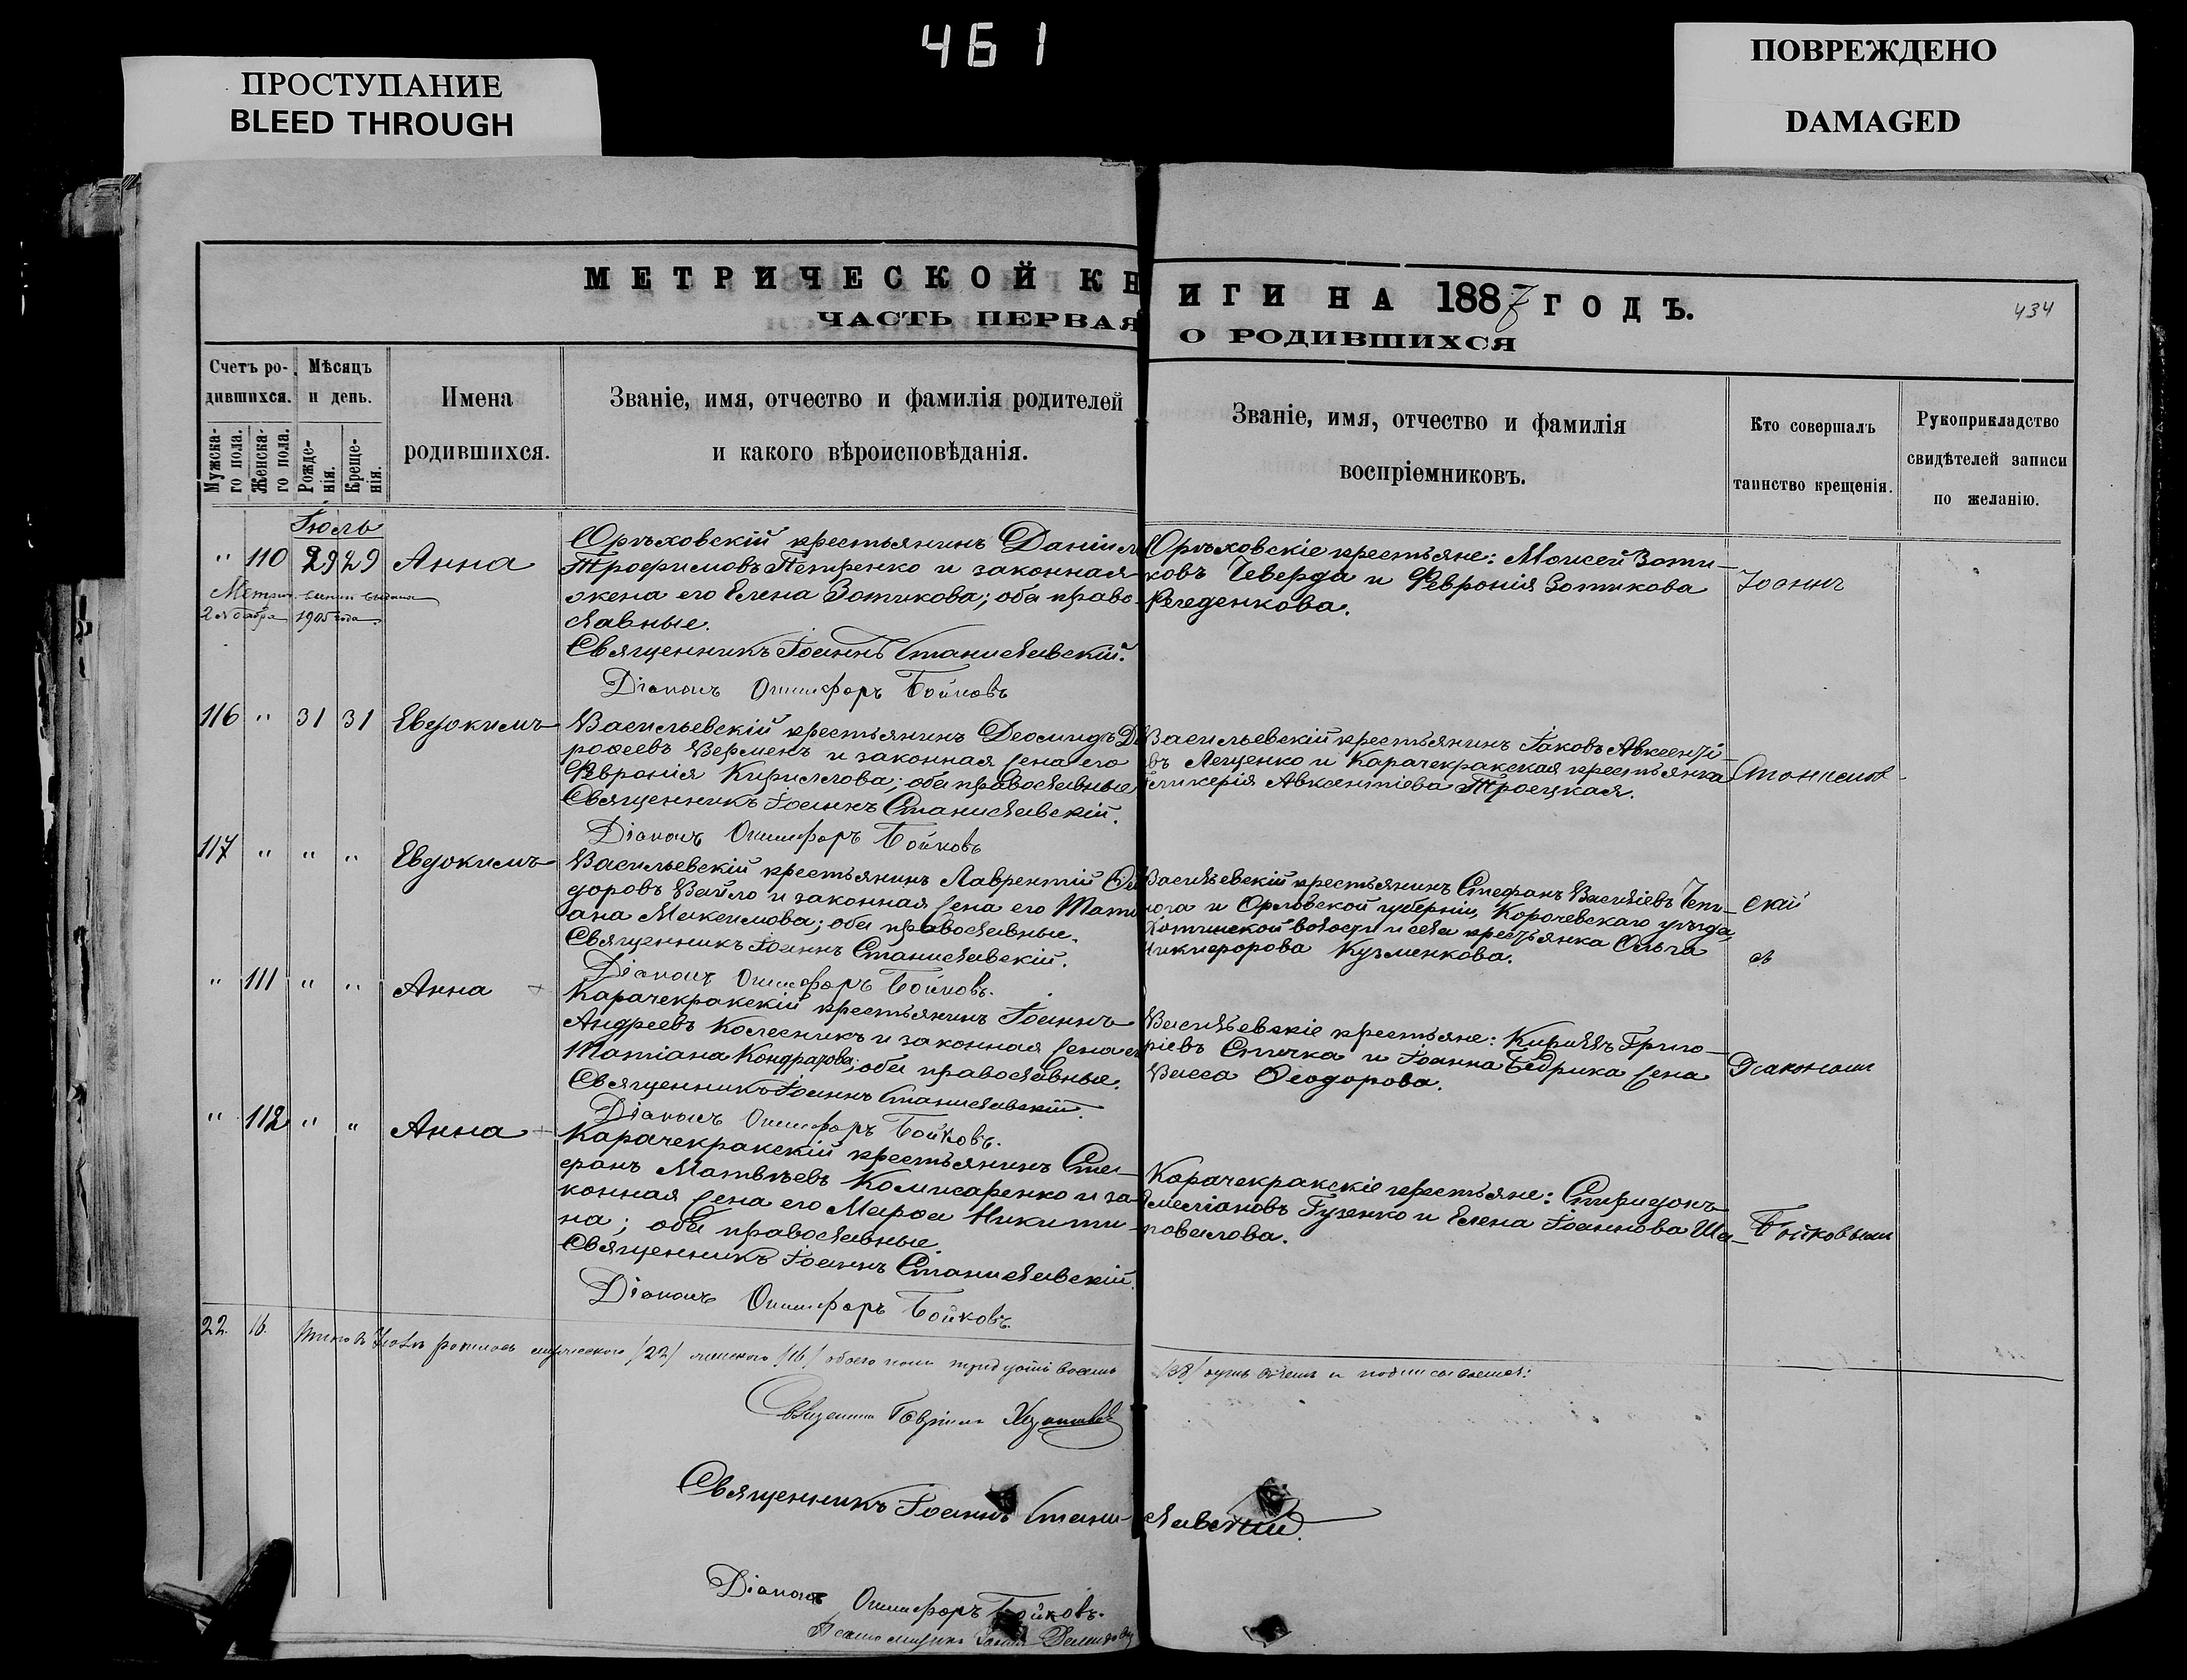 461
ПРОСТУПАНИЕ
BLEED THROUGH
ПОВРЕЖДЕНО
DAMAGED
МЕТРИЧЕСКОЙ КНИГИ НА 1887 ГОДЪ.
434
ЧАСТЬ ПЕРВАЯ О РОДИВШИХСЯ
Счетъ ро-
дившихся.
Мужска-
го пола.
Женска-
го пола.
Мѣсяцъ
и день.
Рожде-
нія.
Креще-
нія.
Имена
родившихся.
Званіе, имя, отчество и фамилія родителей
и какого вѣроисповѣданія.
Званіе, имя, отчество и фамилія
воспріемниковъ.
Кто совершалъ
таинство крещенія.
Рукоприкладство
свидѣтелей записи
по желанію.
Іюль
" 110 29 29 Анна
1905 года
Орѣховскій крестьянинъ Даніилъ
Трофимовъ Петренко и законная
жена его Елена Зотикова; оба право-
славные.
Священникъ Іоаннъ Станиславскій.
Діаконъ Онисифоръ Бойковъ
Орѣховскіе крестьяне: Моисей Зоти-
ковъ Чеверда и Февронія Зотикова
Іоаннъ
116 " 31 31 Евдокимъ
Васильевскій крестьянинъ Деомидъ До
рофеевъ Вермен​ъ и законная жена его
Февронія Кириллова; оба православные
Священникъ Іоаннъ Станиславскій.
Діаконъ Онисифоръ Бойковъ
Васильевскій крестьянинъ Іаковъ Авксенті-
евъ Лещенко и Карачекракская крестьянка
Гликерія Авксентіева Троецкая.
Станислав-
117 " " " Евдокимъ
Васильевскій крестьянинъ Лаврентій Ѳео
доровъ Вайло и законная жена его Тати
ана Максимова; оба православные.
Священникъ Іоаннъ Станиславскій.
Діаконъ Онисифоръ Бойковъ.
Васильевскій крестьянинъ Стефанъ Василіевъ
и Орловской губерніи, Корочевскаго уѣзда,
волости и села крестьянка Ольга
Никифорова Кузменкова.
скій
съ
" 111 " " Анна
Карачекракскій крестьянинъ Іоаннъ
Андреевъ Колесникъ и законная жена его
Татіана Кондратова; оба православные.
Священникъ Іоаннъ Станиславскій.
Діаконъ Онисифоръ Бойковъ.
Васильевскіе крестьяне: Кириллъ Григо-
ріевъ Спичка и Іоанна Бедрика жена
Васса Ѳеодорова.
Діакономъ
" 112 " " Анна
Карачекракскій крестьянинъ Сте-
фанъ Матвѣевъ Комисаренко и за-
конная жена его Марфа Никити-
на; оба православные.
Священникъ Іоаннъ Станиславскій.
Діаконъ Онисифоръ Бойковъ.
Карачекракскіе крестьяне: Спиридонъ
Емеліановъ Гузенко и Елена Іоаннова Ша-
повалова.
Бойковымъ
22. 16. Итого въ Іюлѣ родилось мужескаго /22/ женскаго /16/ обоего пола тридцать восемь /38/ душъ
Священникъ Гавріилъ
Священникъ Іоаннъ Станиславскій.
Діаконъ Онисифоръ Бойковъ.